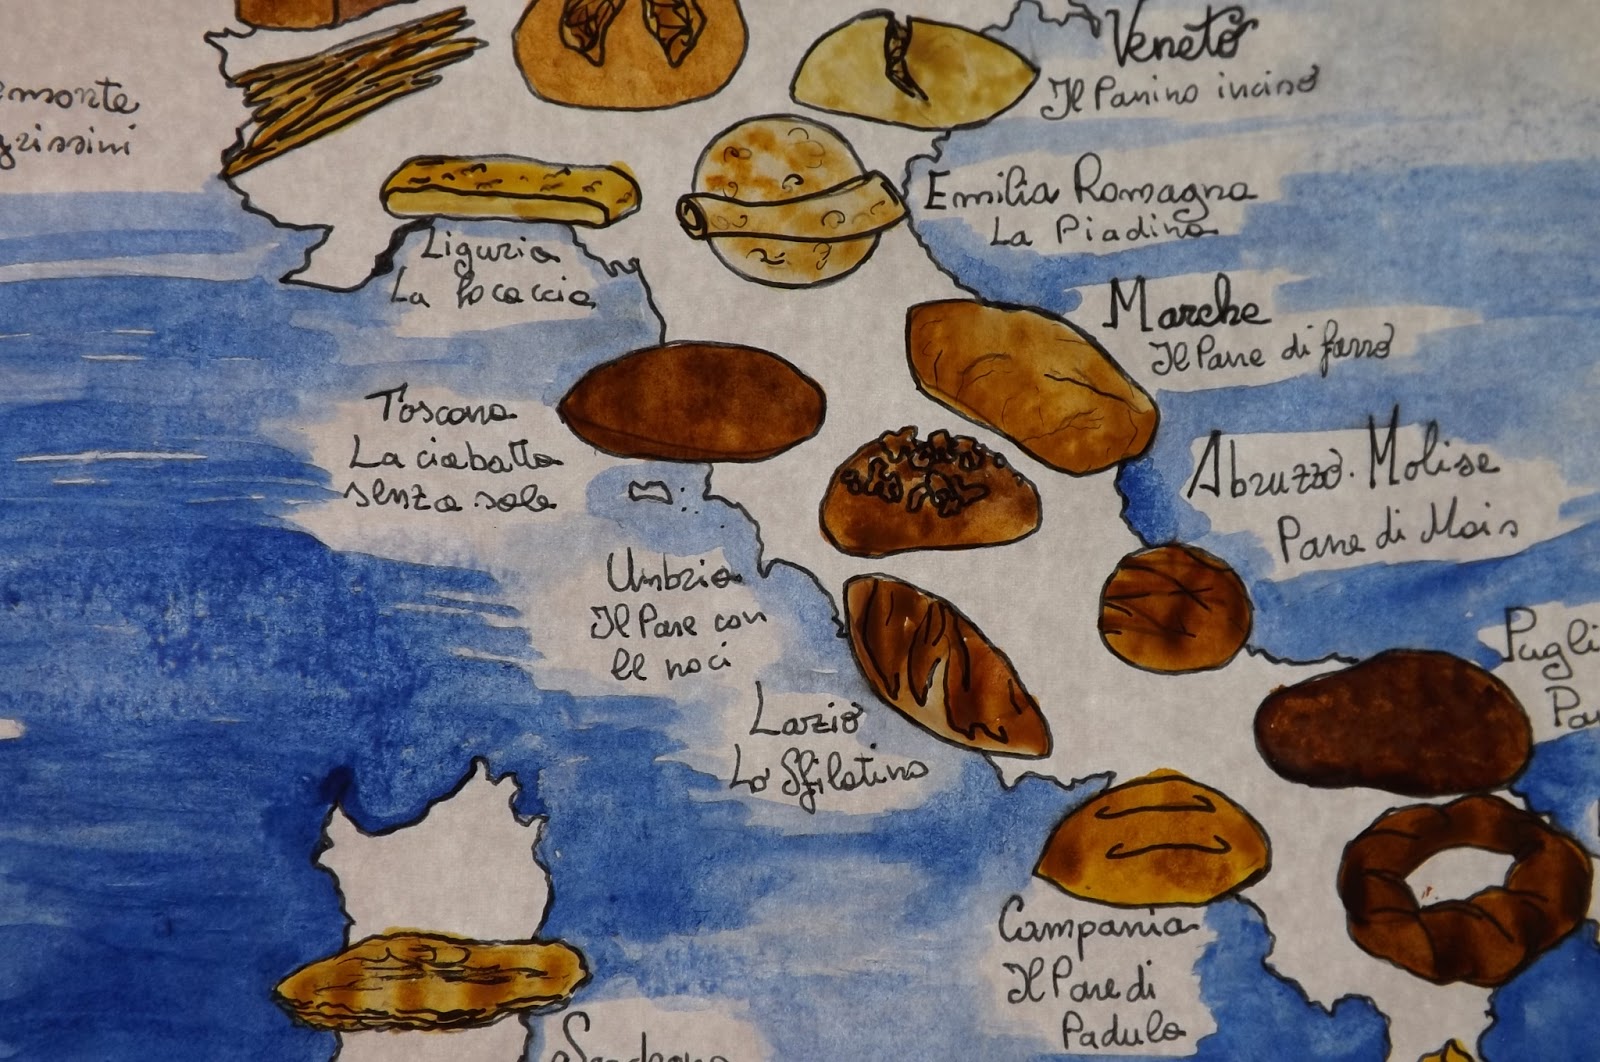 Veneto
Il Panino inciso
Emilia Romagna
La Piadina
Liguria
La focaccia
Marche
Il Pane di farro
Toscana
La ciabatta
senza sale
Abruzzo. Molise
Pane di Mais
Umbria
Il Pane con
le noci
Lazio
Lo Sfilatino
Campania
Il Pane di
Padula